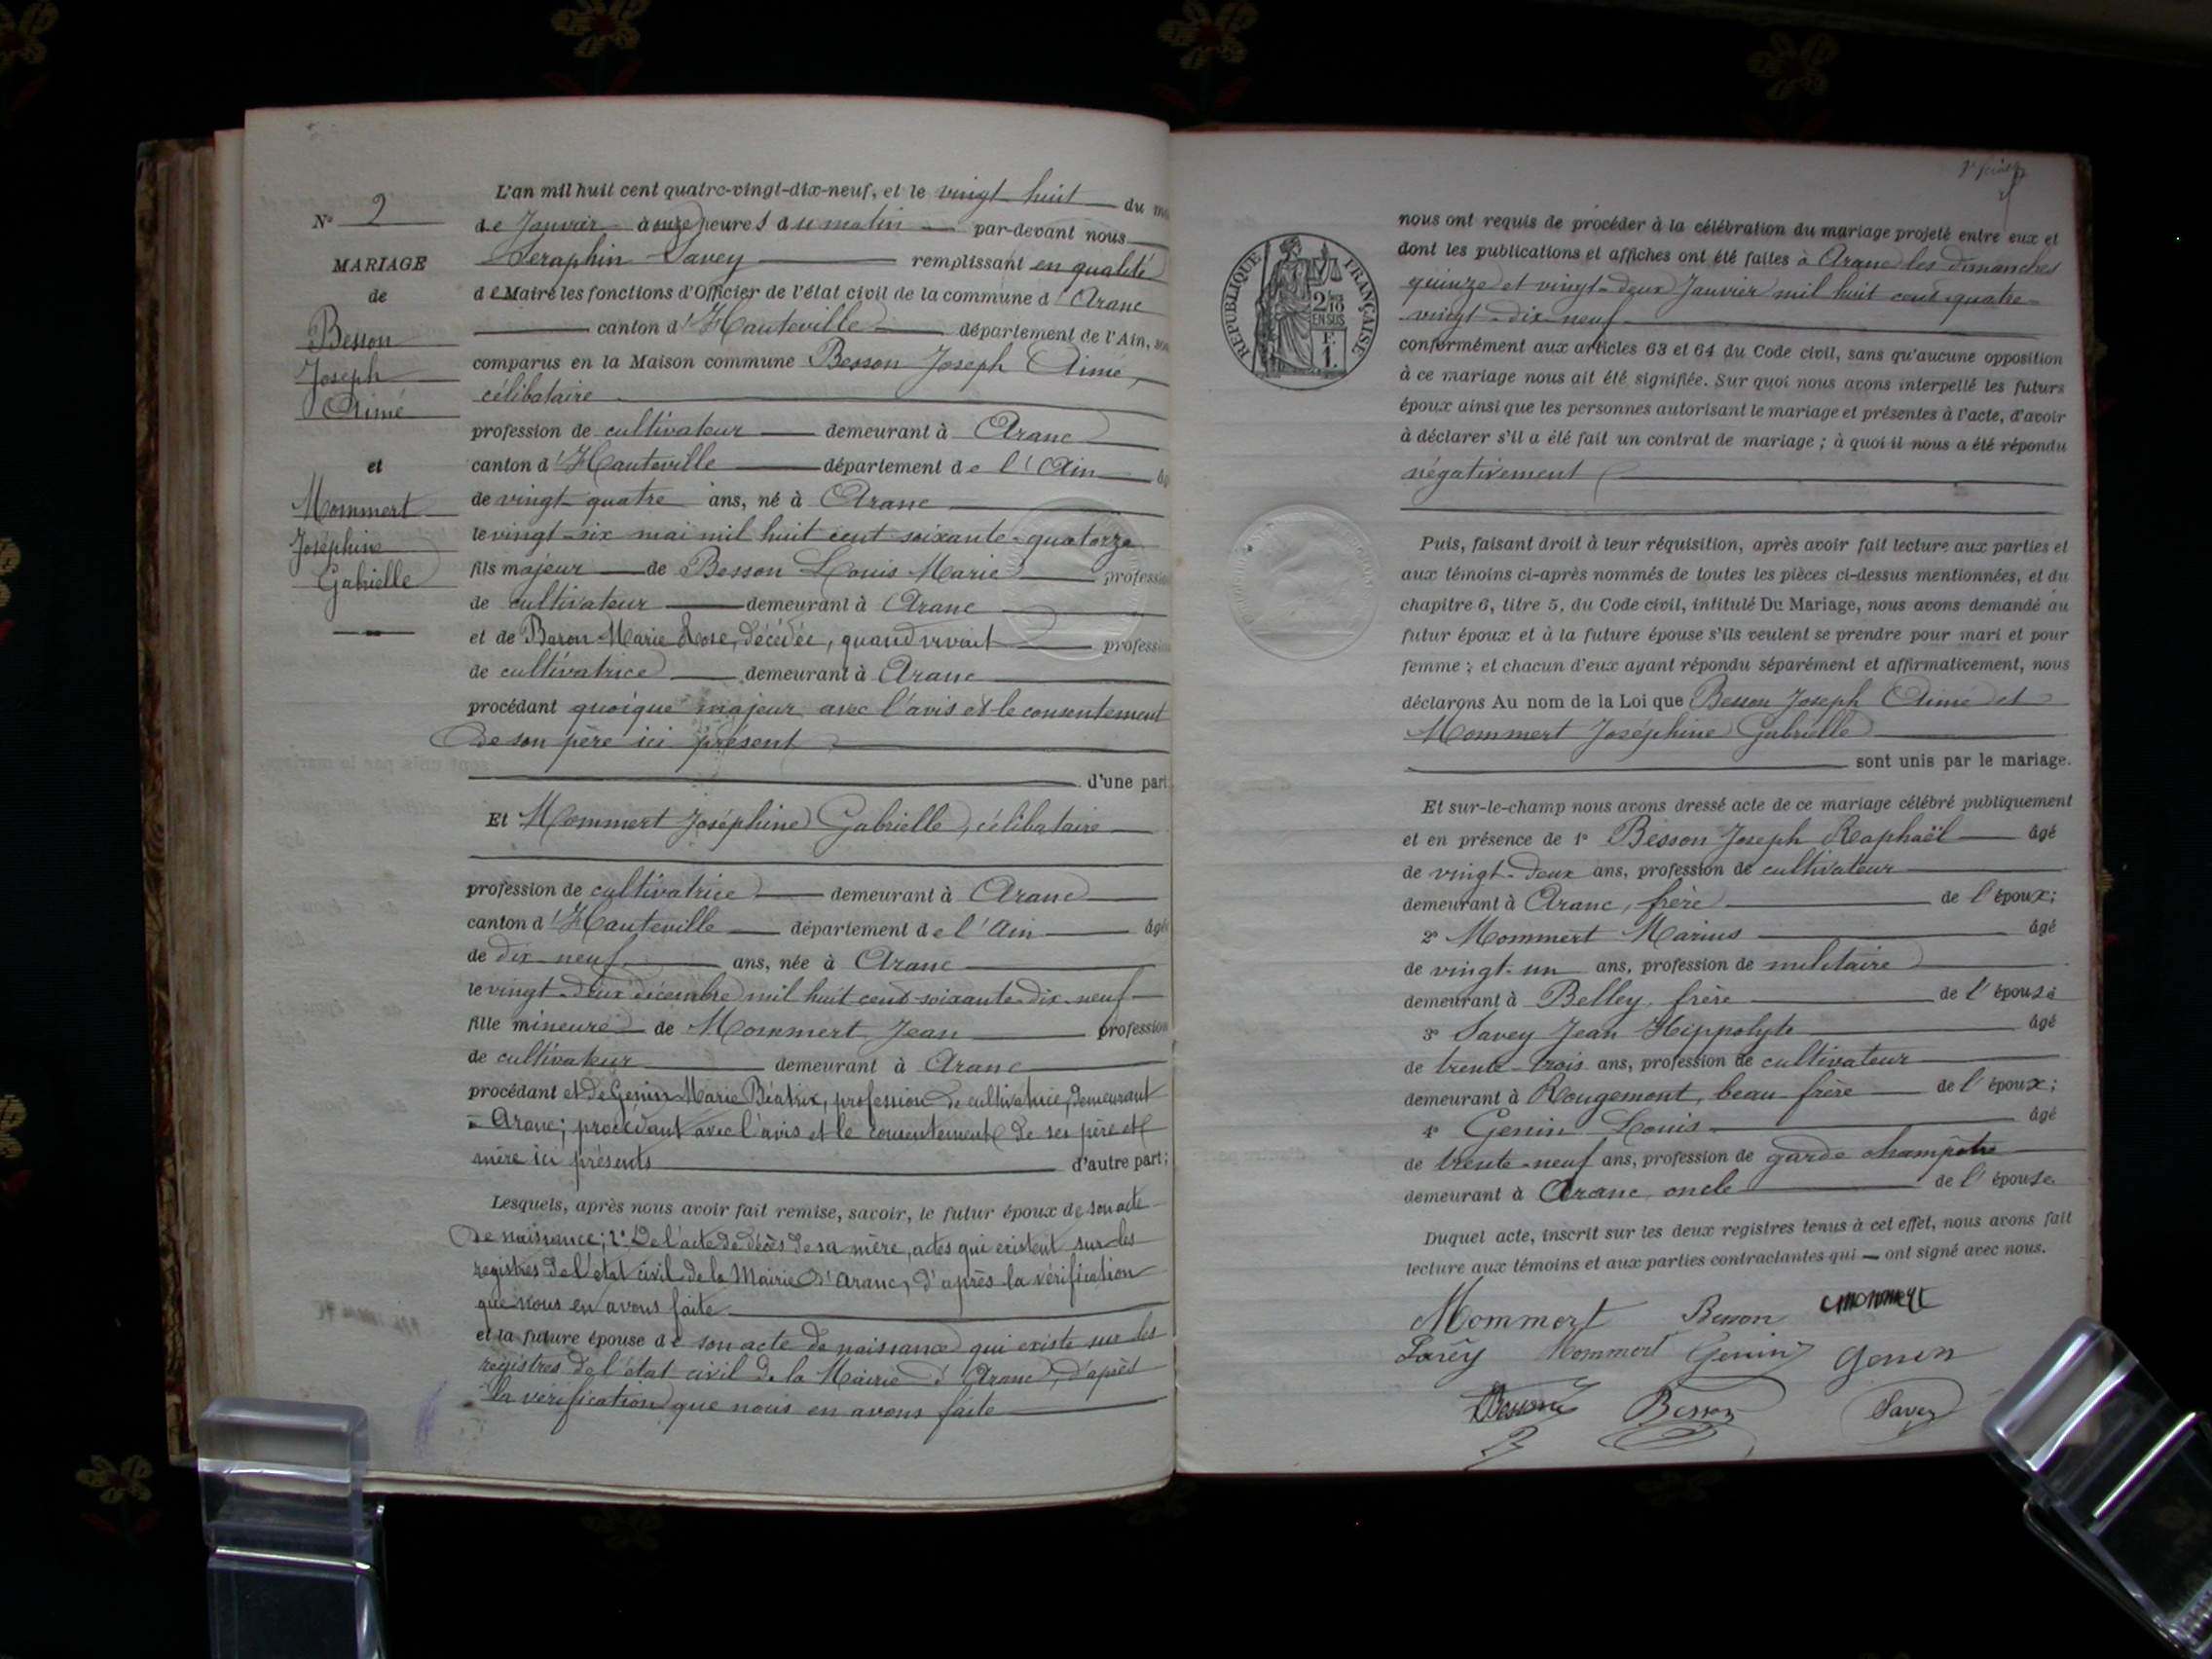 N° 2
MARIAGE
de
Besson
Joseph
Aimé
et
Mommert
Joséphine
Gabrielle
L'an mil huit cent quatre-vingt-dix-neuf, et le vingt huit du
de Janvier à onze heures du matin par-devant nous
Séraphin Savey remplissant en qualité
de Maire les fonctions d'Officier de l'état civil de la commune d'Aranc
canton d'Hauteville département de l'Ain,
comparus en la Maison commune Besson Joseph Aimé,
célibataire
profession de cultivateur demeurant à Aranc
canton d'Hauteville département de l'Ain
de vingt-quatre ans, né à Aranc
le vingt-six mai mil huit cent soixante-quatorze
fils majeur de Besson Louis Marie profession
de cultivateur demeurant à Aranc
et de Baron Marie Rose, décédée, quand vivait profession
de cultivatrice demeurant à Aranc
procédant quoique majeur avec l'avis et le consentement
de son père ici présent
d'une part
Et Mommert Joséphine Gabrielle, célibataire
profession de cultivatrice demeurant à Aranc
canton d'Hauteville département de l'Ain âgé
de dix-neuf ans, née à Aranc
le vingt-deux décembre mil huit cent soixante-dix-neuf
fille mineure de Mommert Jean profession
de cultivateur demeurant à Aranc
procédant et de Genin Marie Béatrix, profession de cultivatrice, demeurant
à Aranc; procédant avec l'avis et le consentement de ses père et
mère ici présents d'autre part;
Lesquels, après nous avoir fait remise, savoir, le futur époux de son acte
de naissance; 2° De l'acte de décès de sa mère, actes qui existent sur les
registres de l'état civil de la Mairie d'Aranc, d'après la vérification
que nous en avons faite
et la future épouse de son acte de naissance qui existe sur les
registres de l'état civil de la Mairie d'Aranc, d'après
la vérification que nous en avons faite
RÉPUBLIQUE FRANÇAISE
2/10
EN SUS
F.
1.
nous ont requis de procéder à la célébration du mariage projeté entre eux et
dont les publications et affiches ont été faites à Aranc les dimanches
quinze et vingt-deux Janvier mil huit cent quatre-
vingt-dix-neuf
conformément aux articles 63 et 64 du Code civil, sans qu'aucune opposition
à ce mariage nous ait été signifiée. Sur quoi nous avons interpellé les futurs
époux ainsi que les personnes autorisant le mariage et présentes à l'acte, d'avoir
à déclarer s'il a été fait un contrat de mariage; à quoi il nous a été répondu
négativement
Puis, faisant droit à leur réquisition, après avoir fait lecture aux parties et
aux témoins ci-après nommés de toutes les pièces ci-dessus mentionnées, et du
chapitre 6, titre 5, du Code civil, intitulé Du Mariage, nous avons demandé au
futur époux et à la future épouse s'ils veulent se prendre pour mari et pour
femme; et chacun d'eux ayant répondu séparément et affirmativement, nous
déclarons Au nom de la Loi que Besson Joseph Aimé et
Mommert Joséphine Gabrielle
sont unis par le mariage.
Et sur-le-champ nous avons dressé acte de ce mariage célébré publiquement
et en présence de 1° Besson Joseph Raphaël âgé
de vingt-deux ans, profession de cultivateur
demeurant à Aranc, frère de l'époux;
2° Mommert Marius âgé
de vingt-un ans, profession de militaire
demeurant à Belley, frère de l'épouse
3° Savey Jean Hippolyte âgé
de trente-trois ans, profession de cultivateur
demeurant à Rougemont, beau-frère de l'époux;
4° Genin Louis âgé
de trente-neuf ans, profession de garde champêtre
demeurant à Aranc, oncle de l'épouse
Duquel acte, inscrit sur les deux registres tenus à cet effet, nous avons fait
lecture aux témoins et aux parties contractantes qui ont signé avec nous.
Mommert Besson Mommert
Savey Mommert Genin Genin
Besson Besson Savey